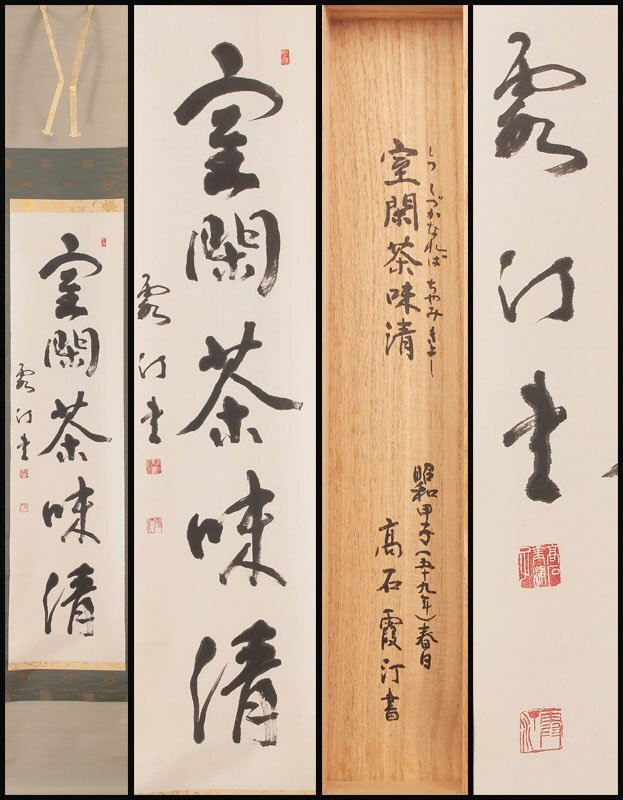 室閑茶味清
霞汀書
室閑茶味清
霞汀書
しつ しづかなれば ちゃみ きよし
室閑茶味清
昭和甲子(五十九年)春日
高石霞汀書
霞汀書